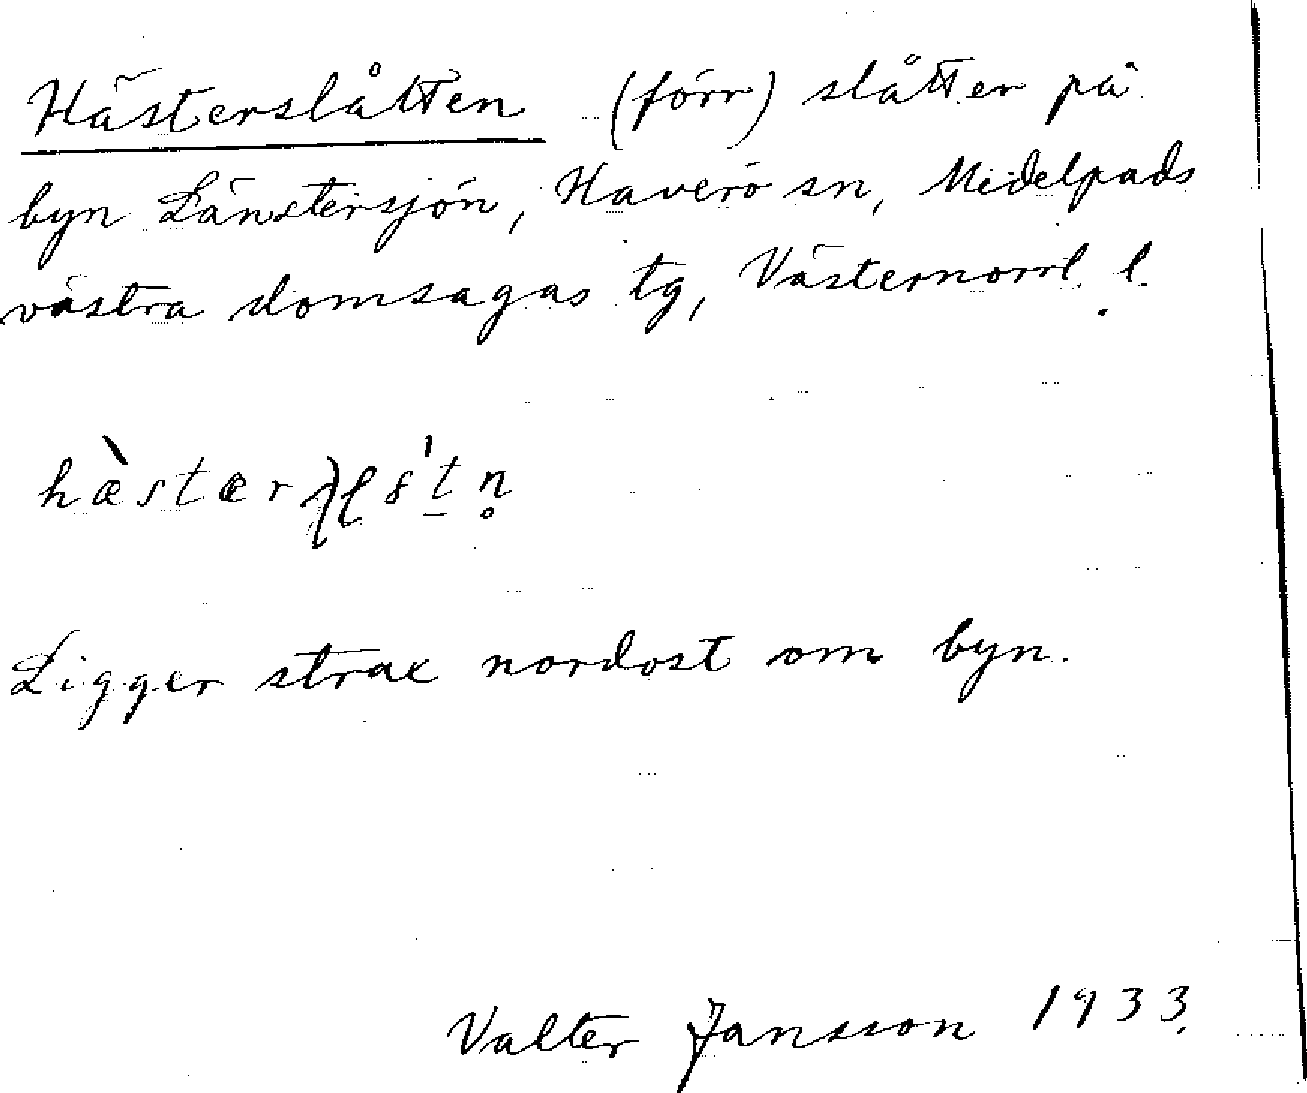 Hästerslåtten (förr) slåtter på
byn Länstersjön, Haverö sn, Medelpads
västra domsagas tg, Västernorrl. l.
Ligger strax nordost om byn.
Valter Jansson 1933.